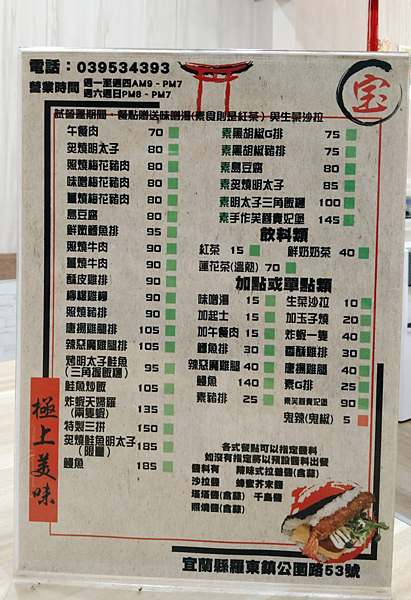 電話：039534393
營業時間 週一至週四AM9 - PM7
週六週日PM8 - PM7
宝
試營運期間，餐點贈送味噌湯(素食則是紅茶)與生菜沙拉
午餐肉 70
炙燒明太子 80
照燒梅花豬肉 80
味噌梅花豬肉 80
薑燒梅花豬肉 80
島豆腐 80
鮮嫩鱈魚排 95
照燒牛肉 90
薑燒牛肉 90
酥皮雞排 90
檸檬雞柳 90
照燒豬排 90
唐揚雞腿排 105
辣惡魔雞腿排 105
烤明太子鮭魚 95
(三角握飯糰)
鮭魚炒飯 105
炸蝦天婦羅 135
(兩隻蝦)
特製三拼 150
炙燒鮭魚明太子 185
(限量)
鰻魚 185
素黑胡椒G排 75
素黑胡椒豬排 75
素島豆腐 80
素炙燒明太子 85
素明太子三角飯糰 100
素手作芙蓉貴妃堡 145
飲料類
紅茶 15 鮮奶奶茶 40
蓮花茶(溫熱) 70
加點或單點類
味噌湯 15 生菜沙拉 10
加起士 15 加玉子燒 20
加午餐肉 15 炸蝦一隻 40
鱈魚排 30 香酥雞排 30
辣惡魔雞腿 40 唐揚雞腿 40
鰻魚 140 素G排 25
素豬排 25 素芙蓉貴妃堡 90
鬼辣(鬼椒) 5
各式餐點可以指定醬料
如沒有指定將以預設醬料出餐
醬料有 辣味式拉差醬(含蒜)
沙拉醬 蜂蜜芥末醬
塔塔醬(含蒜) 千島醬
照燒醬(含蒜)
極上美味
宜蘭縣羅東鎮公園路53號